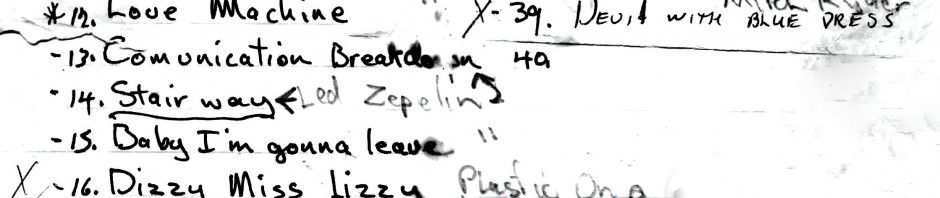 *12. Love Machine X-39. DEVIL WITH BLUE DRESS
-13. Comunication Breakdown 40
-14. Stairway ← Led Zepelin
-15. Baby I'm gonna leave "
X -16. Dizzy Miss Lizzy Plastic Ono